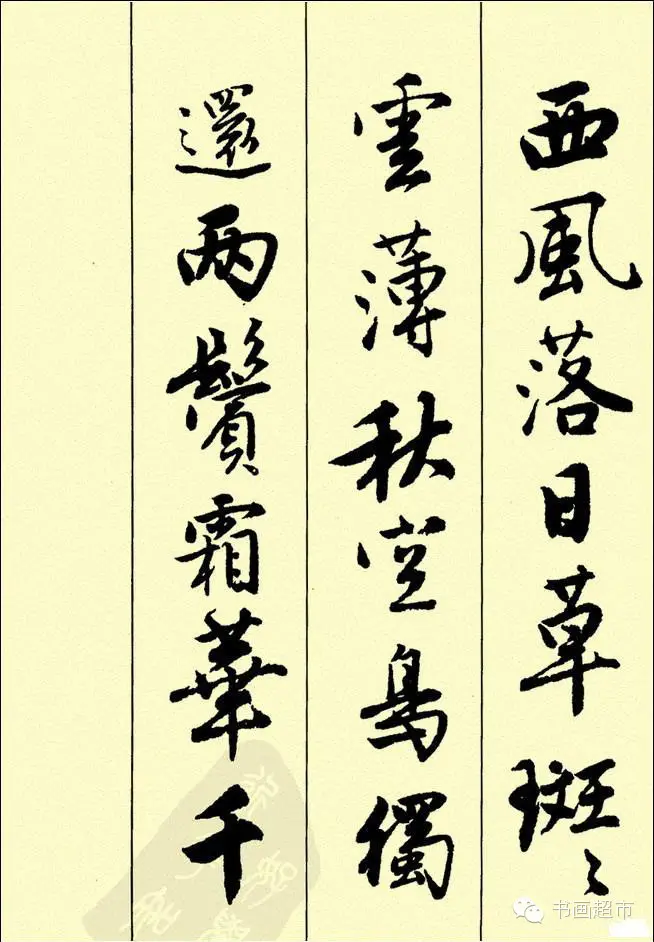 西風落日草斑〻
雲薄秋空鳥獨
還兩鬢霜華千
书画超市